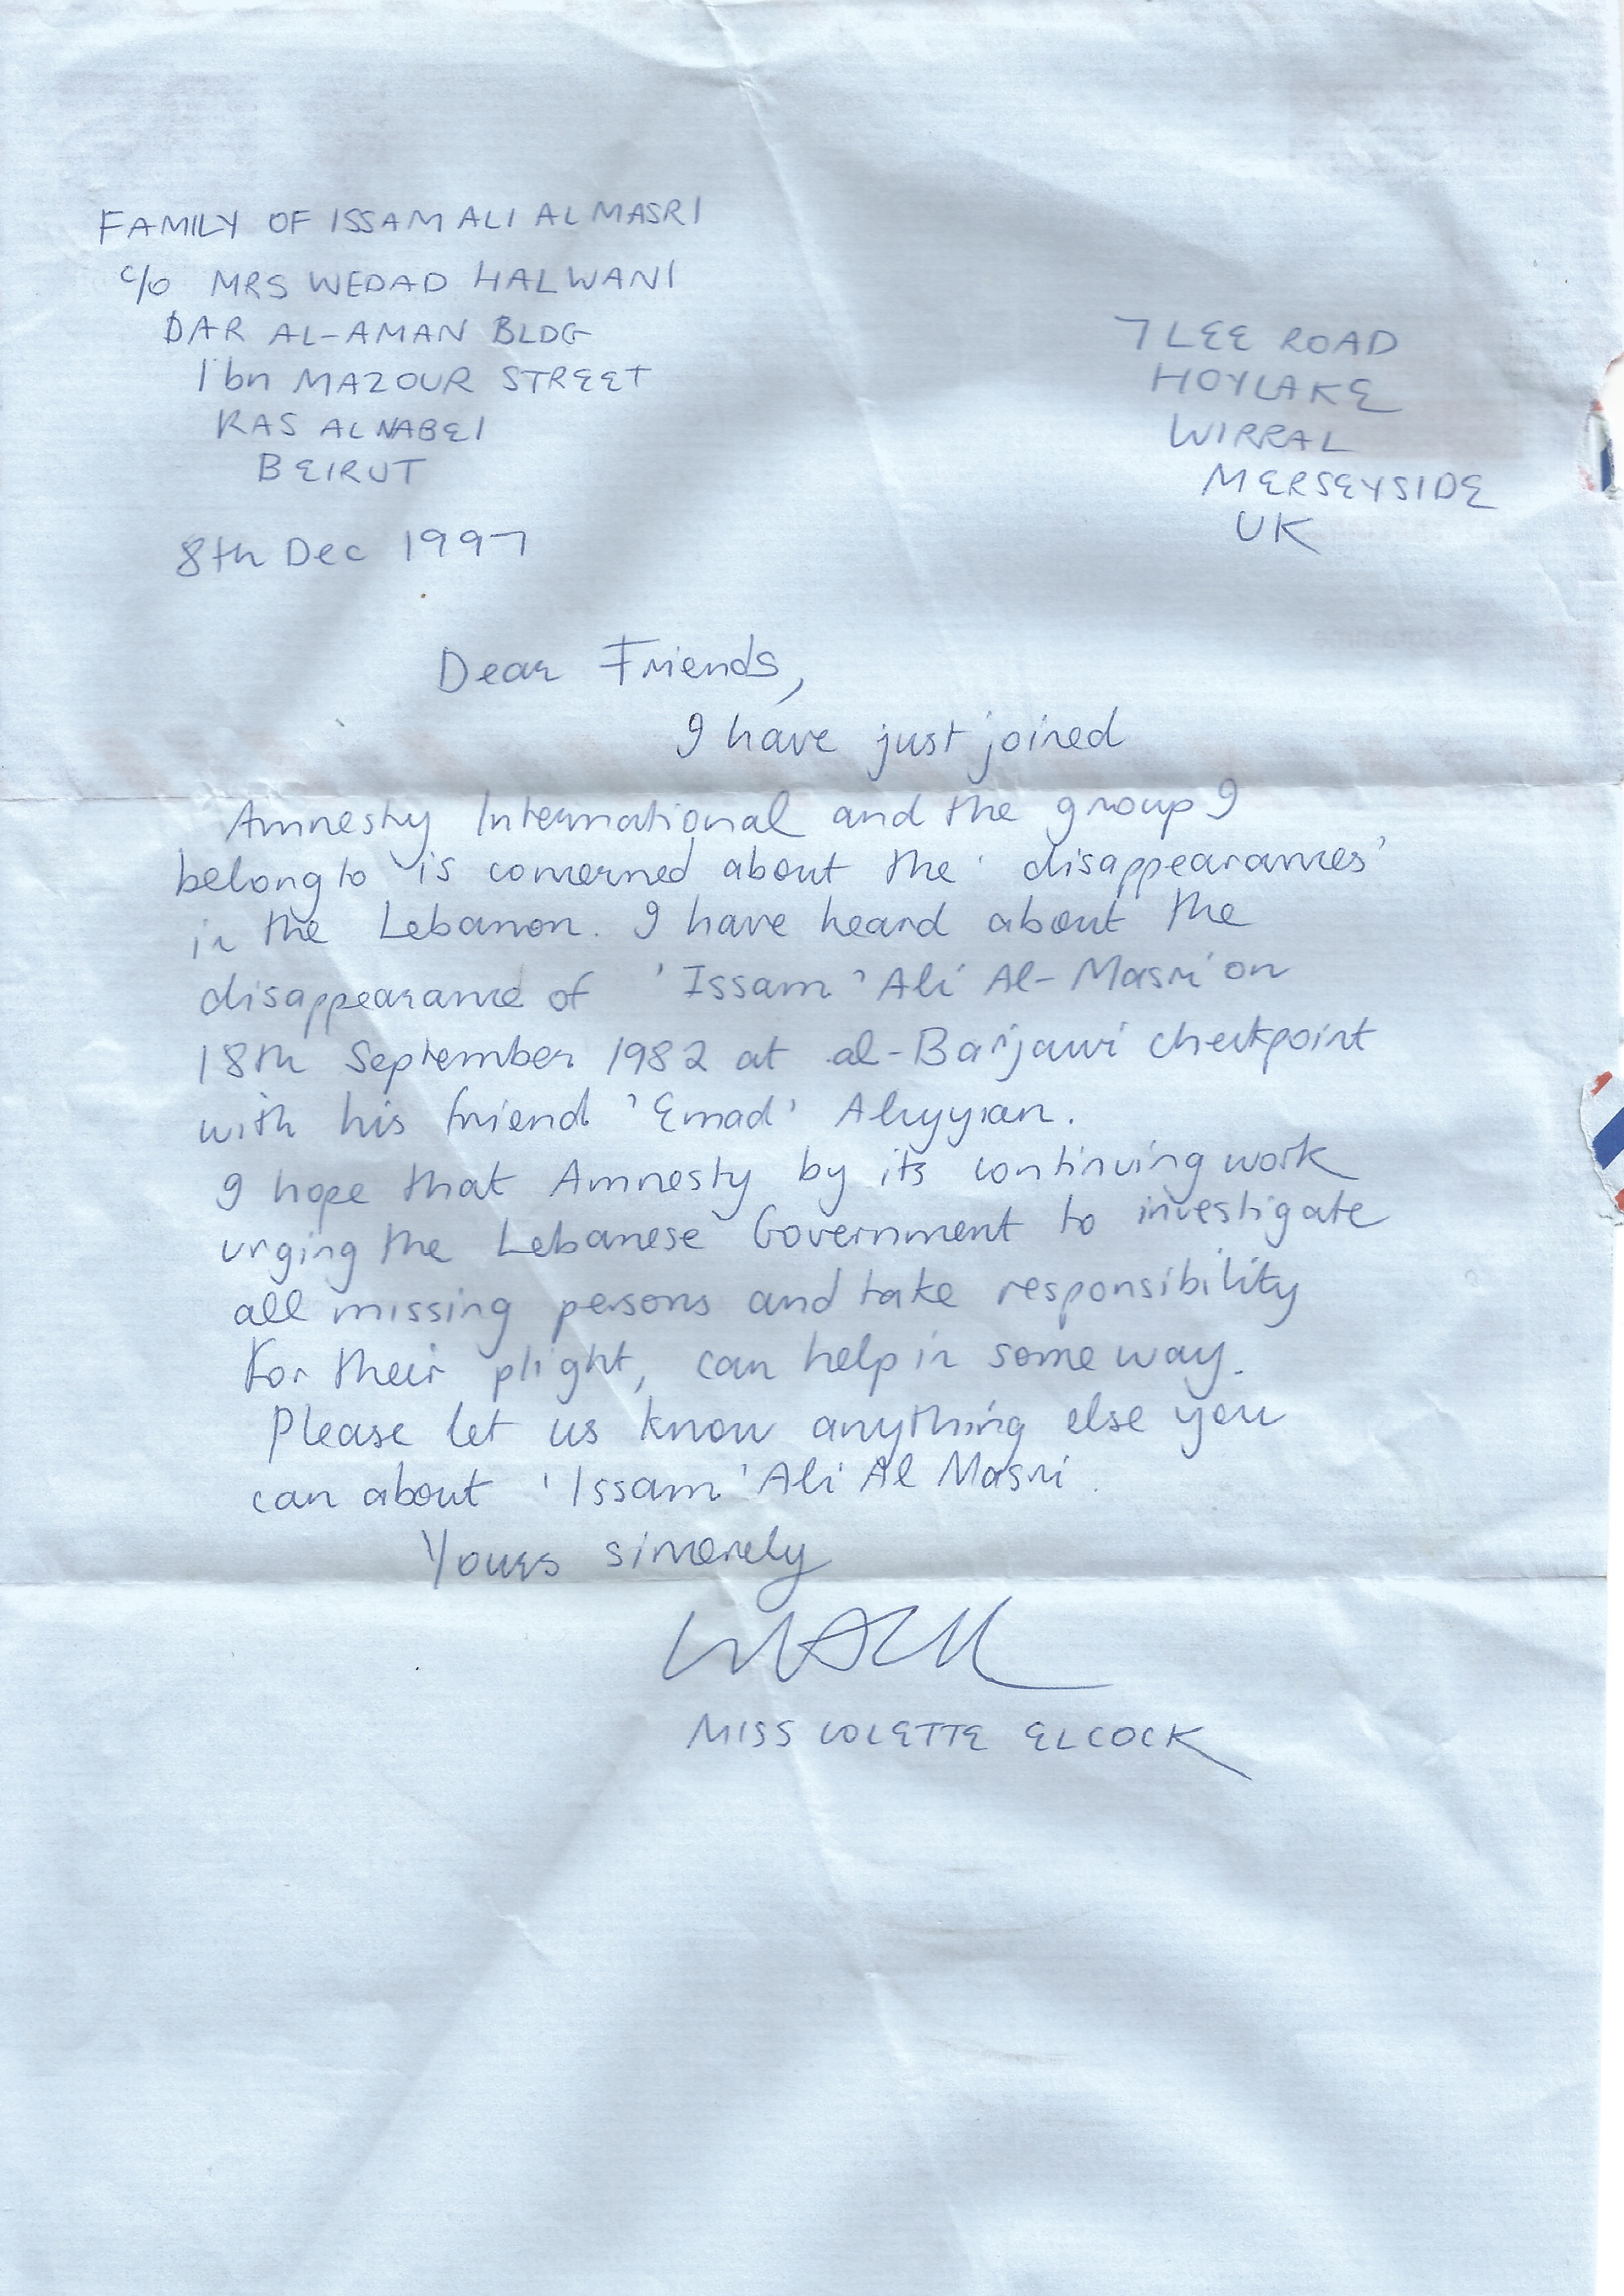 FAMILY OF ISSAM ALI AL MASRI
c/o MRS WEDAD HALWANI
DAR AL-AMAN BLDG
Ibn MAZOUR STREET
RAS AL NABEI
BEIRUT
8th Dec 1997
7 LEE ROAD
HOYLAKE
WIRRAL
MERSEYSIDE
UK
Dear Friends,
I have just joined
Amnesty International and the group I
belong to is concerned about the 'disappearances'
in the Lebanon. I have heard about the
disappearance of 'Issam' Ali Al-Masri on
18th September 1982 at al-Barjawi checkpoint
with his friend 'Emad'
I hope that Amnesty by its continuing work
urging the Lebanese Government to investigate
all missing persons and take responsibility
for their plight, can help in some way.
Please let us know anything else you
can about 'Issam' Ali Al Masri.
Yours sincerely
MISS COLETTE ELCOCK